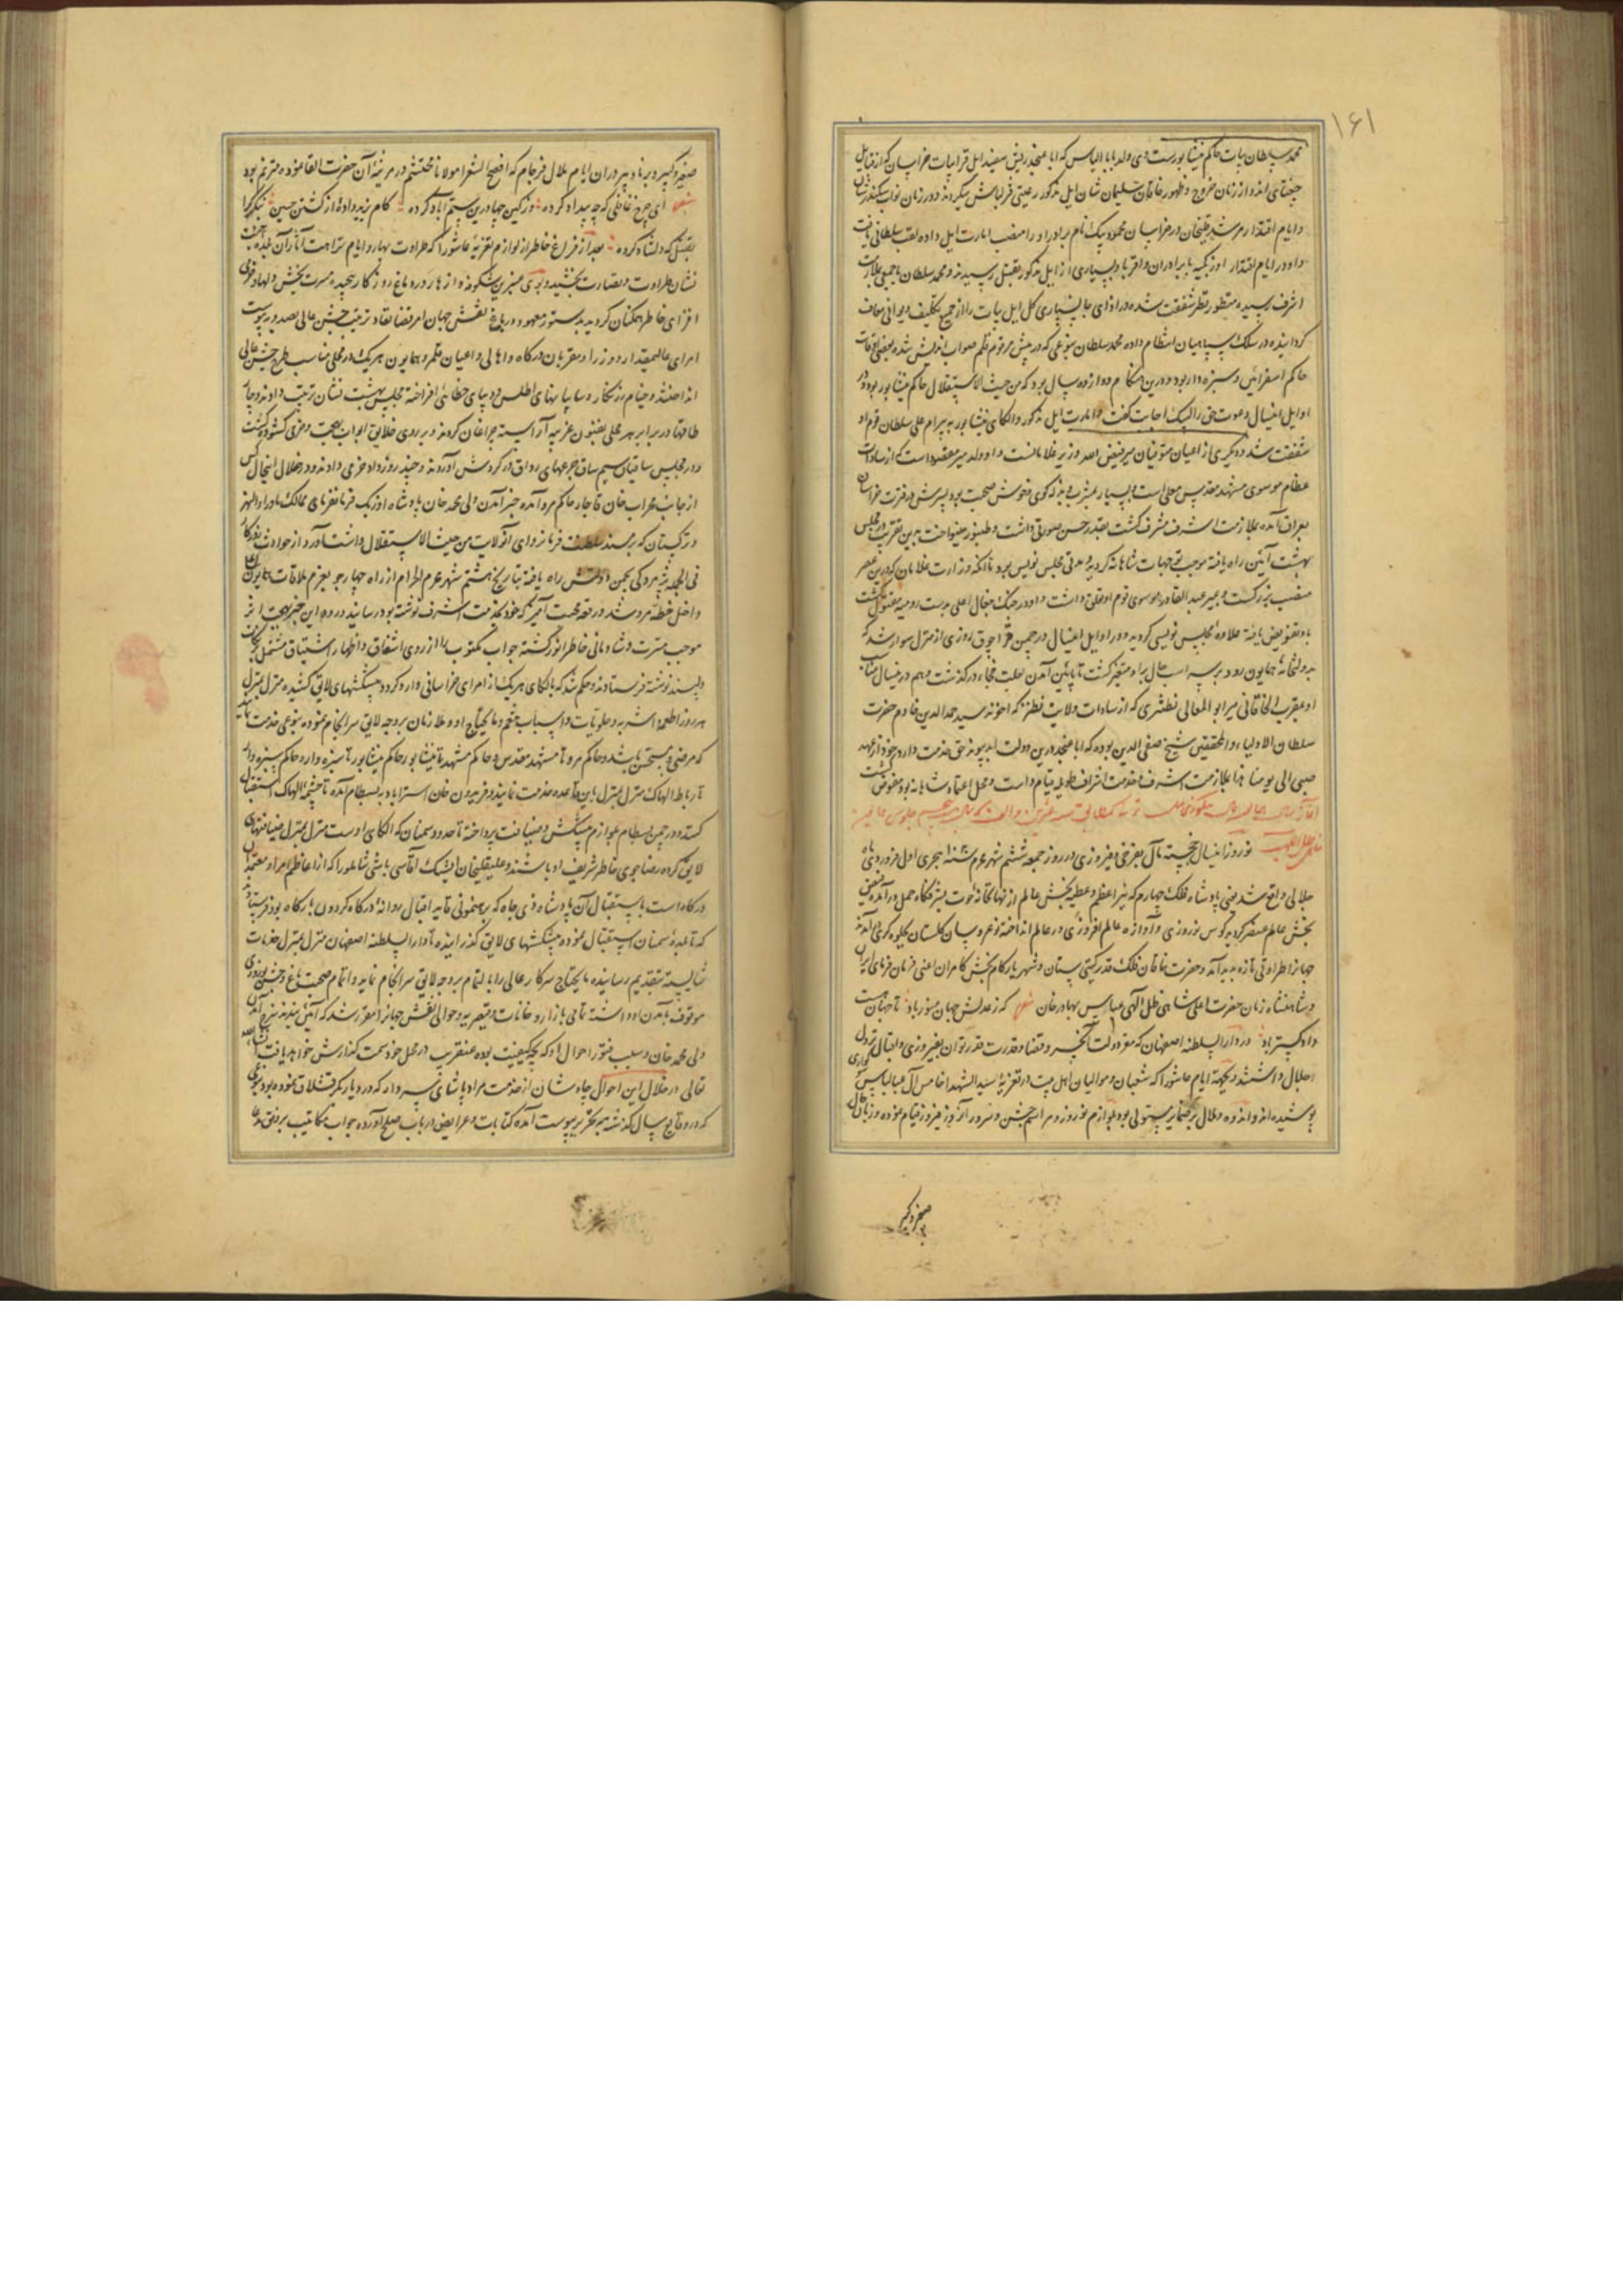 ۱۶۱
محمد سلطان بیات حاکم نیشابورست وی ولد بابا الیاس که ابا عنجد ریش سفید ایل قرابیات خراسان که از قبایل
جغتای اند و از زمان خروج و ظهور خاقان سلیمان شان ایل مذکور رعیتی قزلباش میکردند و در زمان نواب سکندرشان
و ایام اقتدار مرشد قلیخان در خراسان محمود بیک نام برادر او را منصب امارت ایل داده لقب سلطانی یافت
و او در ایام اقتدار اوزبکیه با برادران و اقربا و بسیاری از ایل مذکور بقتل رسیدند و محمد سلطان با جمعی بملازمت
اشرف رسیده منظور نظر شفقت شده در ازای جانسپاری کل ایل بیات را از جمیع تکلیف دیوانی معاف
گردانیده در سلک سپاهیان انتظام داده محمد سلطان بنوعی که در پیش مرقوم قلم صواب اندیش شده بعضی اوقات
حاکم اسفراین و سبزه‌وار بود و درین هنگام دوازده سال بود که من حیث الاستقلال حاکم نیشابور بود و در
اوایل اینسال دعوت حق را لبیک اجابت گفت و امارت ایل مذکور و الکای نیشابور به بیرام علی سلطان قوم او
شفقت شد و دیگری از اعیان متوفیان میر فیض الله وزیر غلامانست و او ولد میر عضد است که از سادات
عظام موسوی مشهد مقدس معلی است و بسیار بشرب و بذله گوی و خوش صحبت بود پسرش در فترت خراسان
بعراق آمده بملازمت اشرف مشرف گشت بقدر حسن صوتی داشت و طنبور مینواخت بدین تقریب در مجلس
بهشت آئین راه یافته موجب توجهات شاهانه گردید و مدتی مجلس نویس بود تا آنکه وزارت غلامان که درین عصر
منصب بزرگست و بمیر عبد القادر موسوی قوم او تعلق داشت و او در جنگ جغال اغلی بدست رومیه مقتول گشت
باو تفویض یافته علاوه مجلس نویسی گردید و در اوایل اینسال در چمن قراچوق روزی از منزل سوار شد که
بدولتخانه همایون رود بر سر اسب حال بر او متغیر گشت تا پائین آمدن بعلت فجاء درگذشت و هم درینسال جناب
او مقرب الخاقانی میر ابو المعالی نطنزی که از سادات ولایت نطنز که اخوند سید حمد الدین خادم حضرت
سلطان الاولیاء و المحققین شیخ صفی الدین بوده که ابا عنجد درین دولت ابد پیوند حق خدمت دارد و خود از عهد
صبی الی یومنا هذا بملازمت اشرف و خدمت اشراف طویله قیام داشت و محل اعتماد شاهانه بود مفوض گشت
نوروز اینسال خجسته مآل بفرخی و فیروزی در روز جمعه ششم شهر محرم سنه هجری اول فروردین ماه
جلالی واقع شد یعنی پادشاه فلک چهارم که نیر اعظم و عطیه بخش عالم از نهانخانه حوت بشرفگاه حمل درآمده فیض
بخش عالم عنصر گردید کوس نوروزی و آوازه عالم افروزی در عالم انداخته نوعروسان گلستان بجلوه گری آمدند
جهانرا طراوتی تازه پدید آمد و حضرت خاقان فلک قدر گیتی ستان و شهریار کام بخش کامران اعنی فرمان فرمای ایران
و شاهنشاه زمان حضرت اعلی شاهی ظل اللهی عباس بهادرخان شعر که ز عدلش جهان منور باد تا جهانست
دادگستر باد در دار السلطنه اصفهان که مقر دولت آنحضرت و قضا و قدرت قدر توان بفیروزی و اقبال نزول
اجلال داشتند و بجهة ایام عاشورا که شیعیان و موالیان اهل بیت در تعزیه سید الشهدا خامس آل عبا لباس سوگواری
پوشیده اند و اندوه و ملال بر ضمایر مستولی بود بلوازم نوروز و مراسم جشن و سرور آن روز فیروز قیام ننموده و زبان حال
صغیر و کبیر
صغیر و کبیر و برنا و پیر در آن ایام ملال فرجام که افصح الشعرا مولانا محتشم در مرثیه آن حضرت القا نموده مترنم بود
شعر ای چرخ غافلی که چه بیداد کرده وز کین چها درین ستم آباد کرده کام یزید داده از کشتن حسین بنگر کرا
بقتل که دلشاد کرده بعد از فراغ خاطر از لوازم تعزیه عاشورا که طراوت بهار و ایام نزاهت آثار آن بلده جنت
نشان طراوت و نضارت بخشید و بوی عنبرین شکوفه و ازهار دره باغ روزگار پیچیده مسرت بخش دلها و خرمی
افزای خاطر همگنان گردید بدستور معهود در باغ نقش جهان امر قضا نفاذ ترتیب جشن عالی بصدور پیوست
امرای عالیمقدار و وزرا و مقربان درگاه و اهالی و اعیان قلمرو همایون هر یک در محلی مناسب طرح جشن عالی
انداختند و خیام زرنگار و سایبانهای اطلس و دیبای خطائی افراخته مجلس بهشت نشان ترتیب دادند و چهار
طاقها در برابر هر محلی بفنون غریبه آراسته چراغان کردند و بر روی خلایق ابواب بهجت و خرمی گشوده گشت
و در مجلس ساقیان سیم ساق جرعهای رواق در گردش آوردند و چند روز داد خرمی دادند و در خلال اینحال کس
از جانب محراب خان قاجار حاکم مرو آمده خبر آمدن ولی محمد خان پادشاه اوزبک فرمانفرمای ممالک ماوراء النهر
و ترکستان که بر مسند سلطنت فرمانروای آنولایت من حیث الاستقلال داشت آورد و از حوادث روزگار
فی الجمله پژمردگی بچمن دولتش راه یافته بتاریخ هشتم شهر محرم الحرام از راه چهارجو بعزم ملاقات همایون اعلی
داخل خطه مرو شد و رقعه محبت آمیز که خود بخدمت اشرف نوشته بود رسانید ورود این خبر بهجت اثر
موجب مسرت و شادمانی خاطر انور گشته جواب مکتوب را از روی اشفاق و اظهار اشتیاق مشتمل بر نکات
دلپسند نوشته فرستادند و حکم شد که بالکای هر یک از امرای خراسانی وارد گردد پیشکشهای لایق کشیده منزل بمنزل
هر روز اطعمه و اشربه و حلویات و اسباب تنعم و مایحتاج او و ملازمان بر وجه لایق سرانجام نموده بنوعی خدمت نمایند
که مرضی و مستحسن باشد و حاکم مرو تا مشهد مقدس و حاکم مشهد تا نیشابور و حاکم نیشابور تا سبزه وار و حاکم سبزه وار
تا رباط الهاک منزل بمنزل باین قاعده خدمت نمایند و فریدون خان استراباد به بسطام آمده تا چشمه الهاک استقبال
کند و در چمن بسطام بلوازم پیشکش و ضیافت پرداخته تا حدود سمنان که الکای اوست منزل بمنزل ضیافتهای
لایق کرده رضاجوی خاطر شریف او باشند و علیقلیخان ایشیک آقاسی باشی شاملو را که از اعاظم امرا و معتمدان
درگاه است باستقبال آن پادشاه ذی جاه که برهنمونی تأیید اقبال روانه درگاه گردون بارگاه بود فرستادند
که تا بلده سمنان استقبال نموده پیشکشهای لایق گذرانیده تا دار السلطنه اصفهان منزل بمنزل خدمات
شایسته بتقدیم رسانیده مایحتاج سرکار عالی را بالتمام بر وجه لایق سرانجام نماید و اتمام صحبت باغ و جشن نوروزی
موقوف بآمدن او داشته تمامی بازار و خانات و قیصریه و حوالی نقش جهانرا مقرر شد که آئین بندند شرح آمدن
ولی محمد خان و سبب فتور احوال او که بچه کیفیت بوده عنقریب در محل خود سمت گذارش خواهد یافت انشاء الله
تعالی در خلال این احوال چاوشان از خدمت مراد پاشای سردار که در دیار بکر قشلاق نموده بود بنوعی
که در وقایع سال گذشته بتحریر پیوست آمده کتابات و عرایض در باب صلح آورده جواب مکاتیب بر وفق مدعا